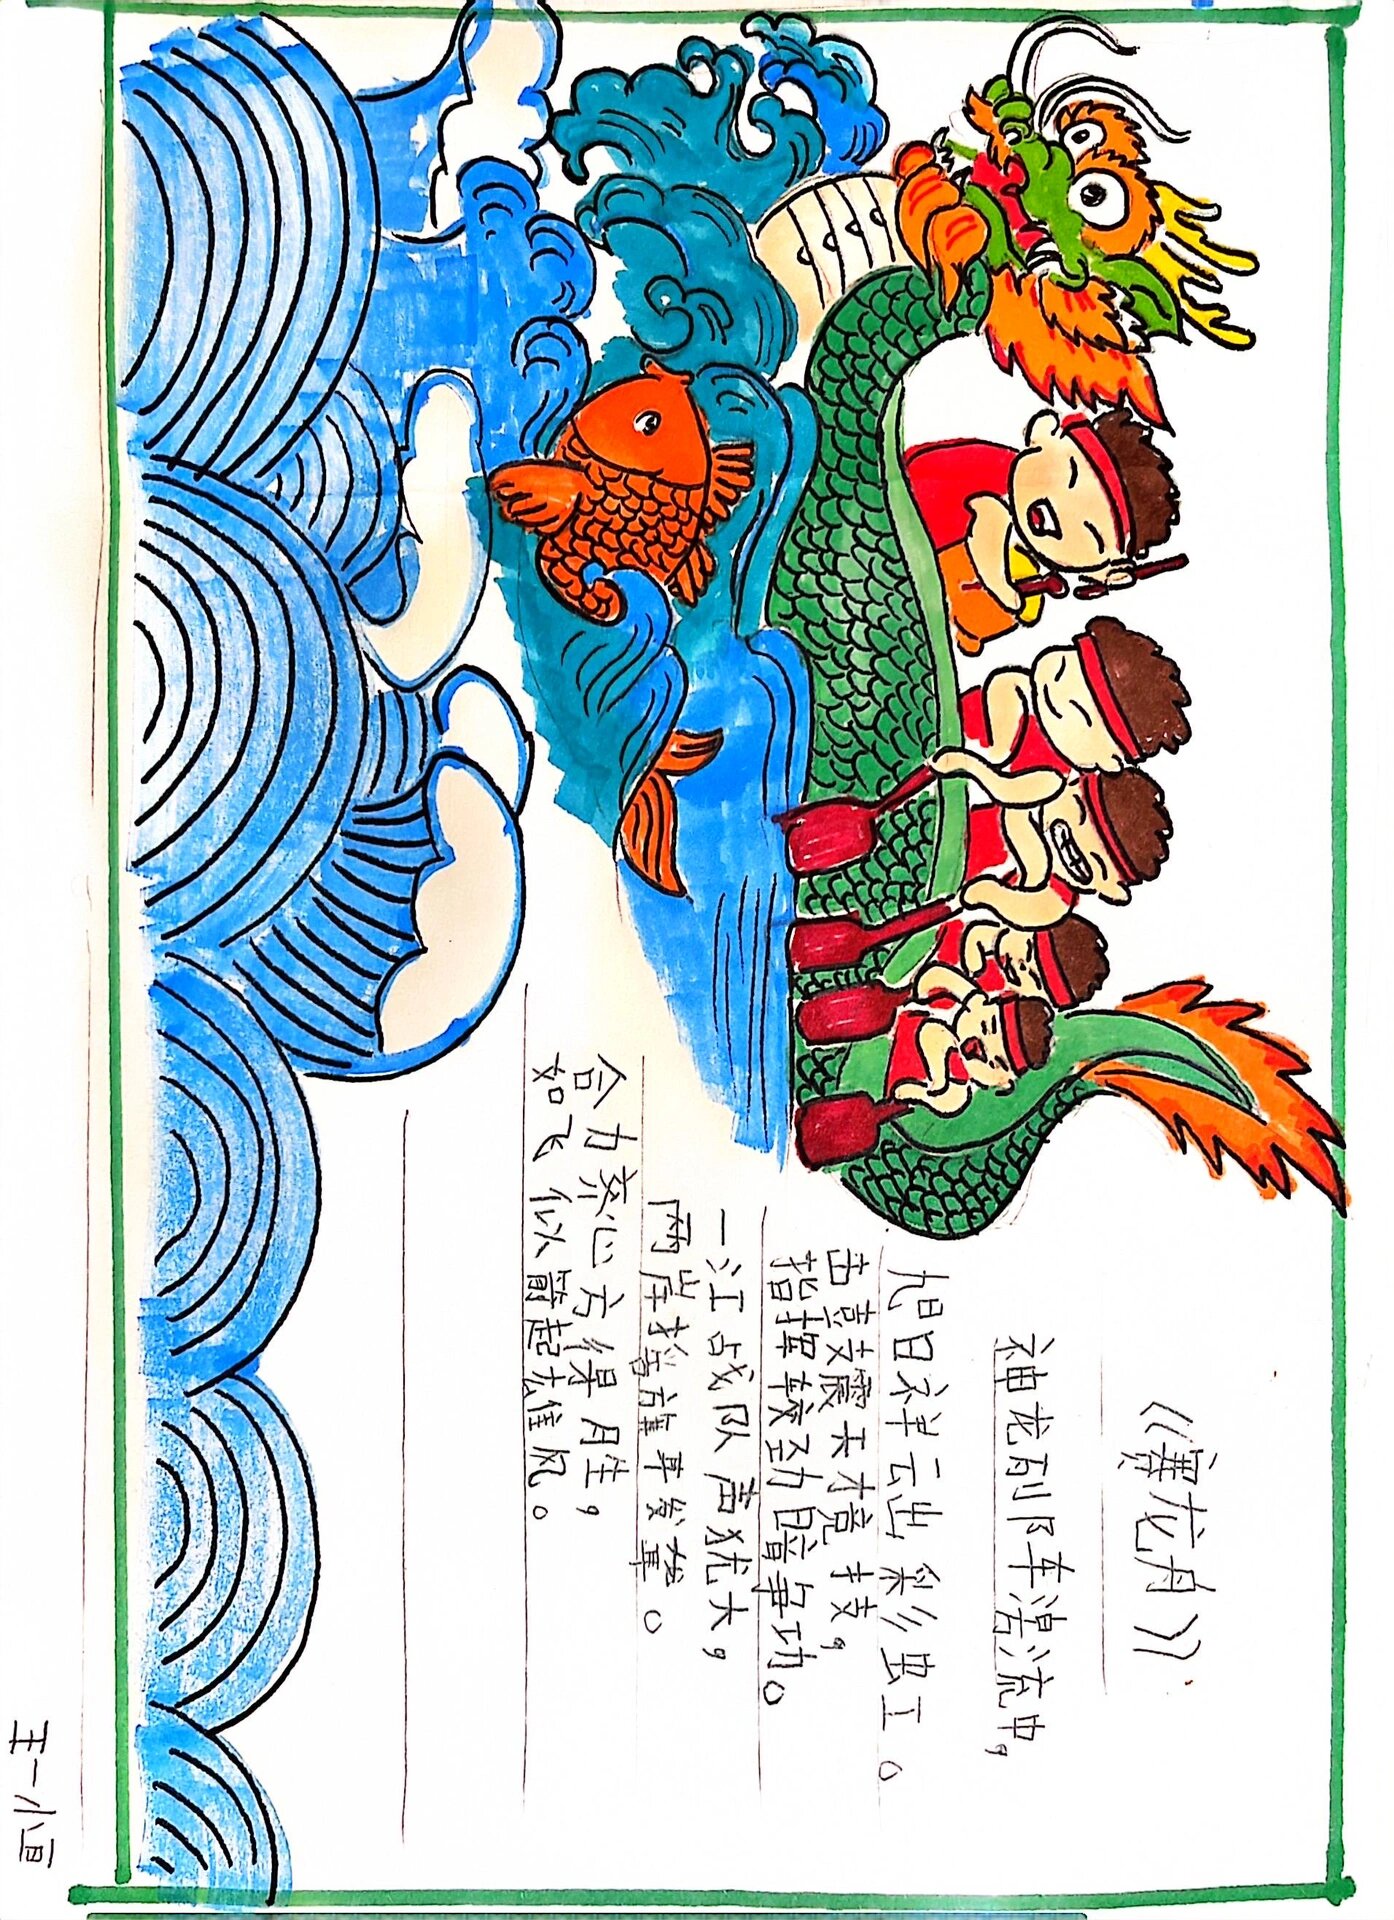 《赛龙舟》
神龙列阵车湿流中，
旭日祥云出彩虹。
击鼓震天竞技，
指挥较劲暗争功。
一江战队声犹大，
两岸摇旗
合力齐心方得胜，
如飞似箭起雄风。
王一小